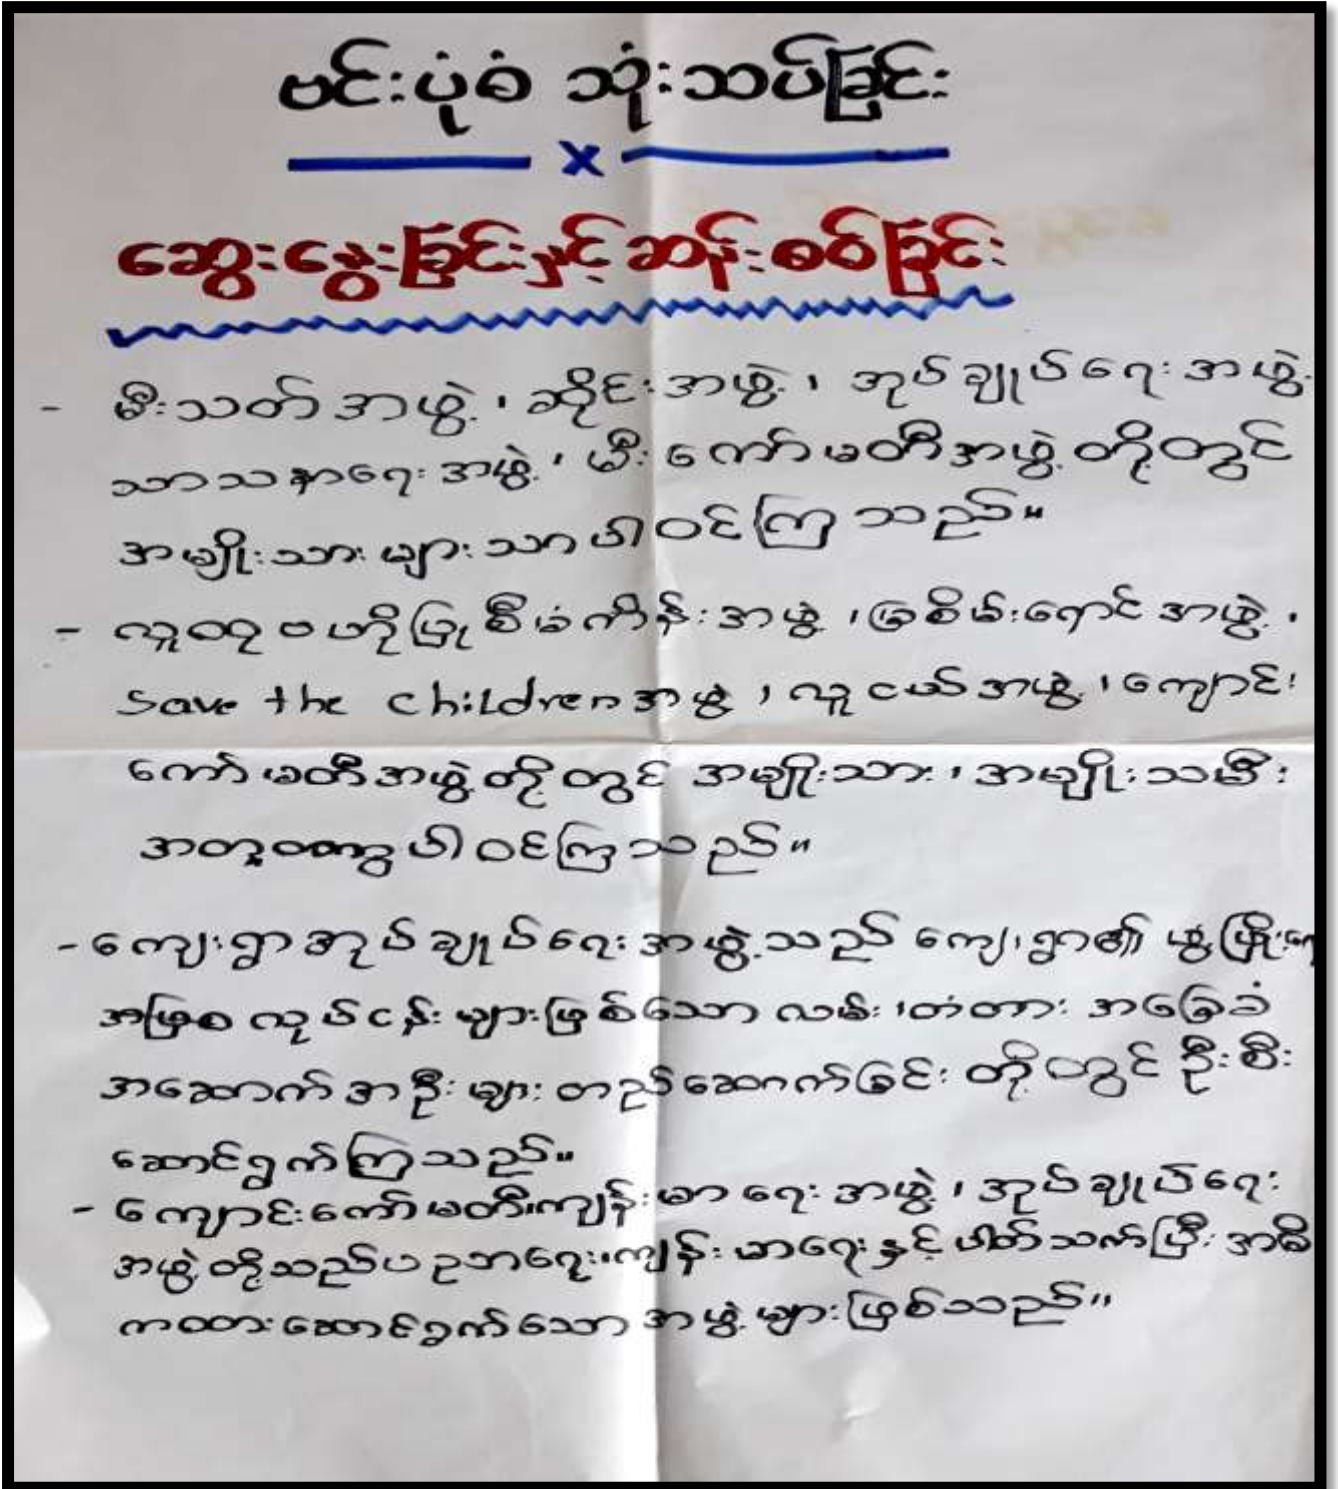 ဗင်းပုံစံ သုံးသပ်ခြင်း
x
ဆွေးနွေးခြင်းနှင့်ဆန်းစစ်ခြင်း
- မီးသတ်အဖွဲ့၊ ဆိုင်းအဖွဲ့၊ အုပ်ချုပ်ရေးအဖွဲ့
သာသနာရေးအဖွဲ့၊ မီးကော်မတီအဖွဲ့တို့တွင်
အမျိုးသားများသာပါဝင်ကြသည်။
- လူထုဗဟိုပြုစီမံကိန်းအဖွဲ့၊ မြစိမ်းရောင်အဖွဲ့၊
Save the children အဖွဲ့၊ လူငယ်အဖွဲ့၊ ကျောင်း
ကော်မတီအဖွဲ့တို့တွင် အမျိုးသား၊ အမျိုးသမီး
အတူတကွပါဝင်ကြသည်။
- ကျေးရွာအုပ်ချုပ်ရေးအဖွဲ့သည် ကျေးရွာ၏ ဖွံ့ဖြိုးရေ
လုပ်ငန်းများဖြစ်သော လမ်း၊တံတား အခြေခံ
အဆောက်အဦးများ တည်ဆောက်ခြင်း တို့တွင် ဦးစီး
ဆောင်ရွက်ကြသည်။
- ကျောင်းကော်မတီ၊ကျန်းမာရေးအဖွဲ့၊ အုပ်ချုပ်ရေး
အဖွဲ့တို့သည်ပညာရေး၊ကျန်းမာရေးနှင့်ပါတ်သက်ပြီး အဓိ
ကထားဆောင်ရွက်သောအဖွဲ့များဖြစ်သည်။